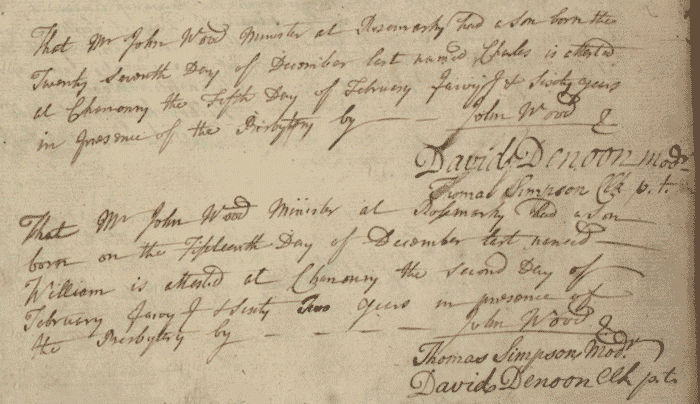 That Mr John Wood Minister at Rosemarky had a Son born the
Twenty Seventh Day of December last named Charles is attested
at Chanonry the Fifth Day of February Jaivij & Sixty years
in presence of the Presbytery by — — John Wood
David Denoon Modr
Thomas Simpson Clk p.t.
That Mr John Wood Minister at Rosemarky had a Son
born on the Fifteenth Day of December last named
William is attested at Chanonry the Second Day of
February Jaivij & Sixty Two years in presence of
the Presbytery by — — — — John Wood
Thomas Simpson Modr
David Denoon Clk p.t.